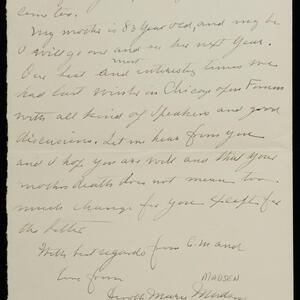 come too.
My mother is 83 year old, and may be
I will go over and see her next year.
Our best and interesting times we
most
had last winter in Chicago open Forum
with all kind of Speakers and good
discussions. Let me hear from you
and I hope you are well and that your
mothers death does not mean too
much change for you except for
the better
With best regards from C.M and
love from
MADSEN
Marie Madsen